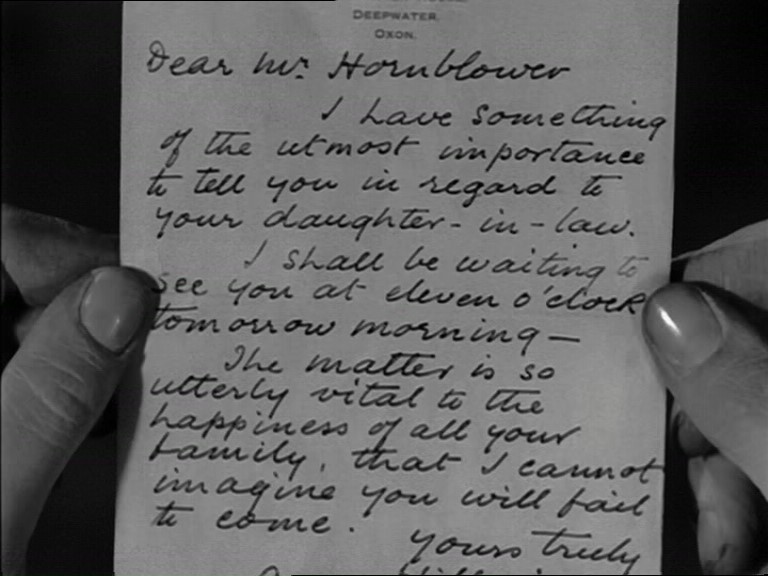 DEEPWATER,
OXON.
Dear Mr. Hornblower
I have something
of the utmost importance
to tell you in regard to
your daughter-in-law.
I shall be waiting to
see you at eleven o'clock
tomorrow morning—
The matter is so
utterly vital to the
happiness of all your
family, that I cannot
imagine you will fail
to come.
Yours truly